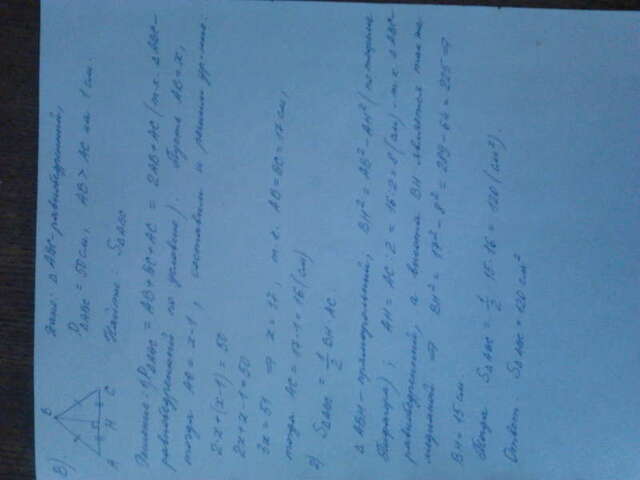 В).
B
A H C
Дано: Δ ABC-равнобедренный,
P ΔABC = 50 см, AB > AC на 1 см.
Найти: S ΔABC
Решение: 1) P ΔABC = AB + BC + AC = 2AB + AC (т.к. Δ ABC-
равнобедренный по условию). Пусть AB = x,
тогда AC = x-1, составим и решим ур-ние.
2·x+(x-1) = 50
2x+x-1=50
3x = 51 ⇒ x = 17, т.е. AB=BC=17 см,
тогда AC = 17-1 = 16 (см)
2) S ΔABC = 1/2 BH·AC.
Δ ABH-прямоугольный, BH² = AB² - AH² (по теореме
Пифагора); AH = AC:2 = 16:2 = 8 (см) - т.к. Δ ABC-
равнобедренный, а высота BH является также
медианой ⇒ BH² = 17² - 8² = 289 - 64 = 225 ⇒
BH = 15 см.
Тогда S ΔABC = 1/2 · 15·16 = 120 (см²).
Ответ: S ΔABC = 120 см²